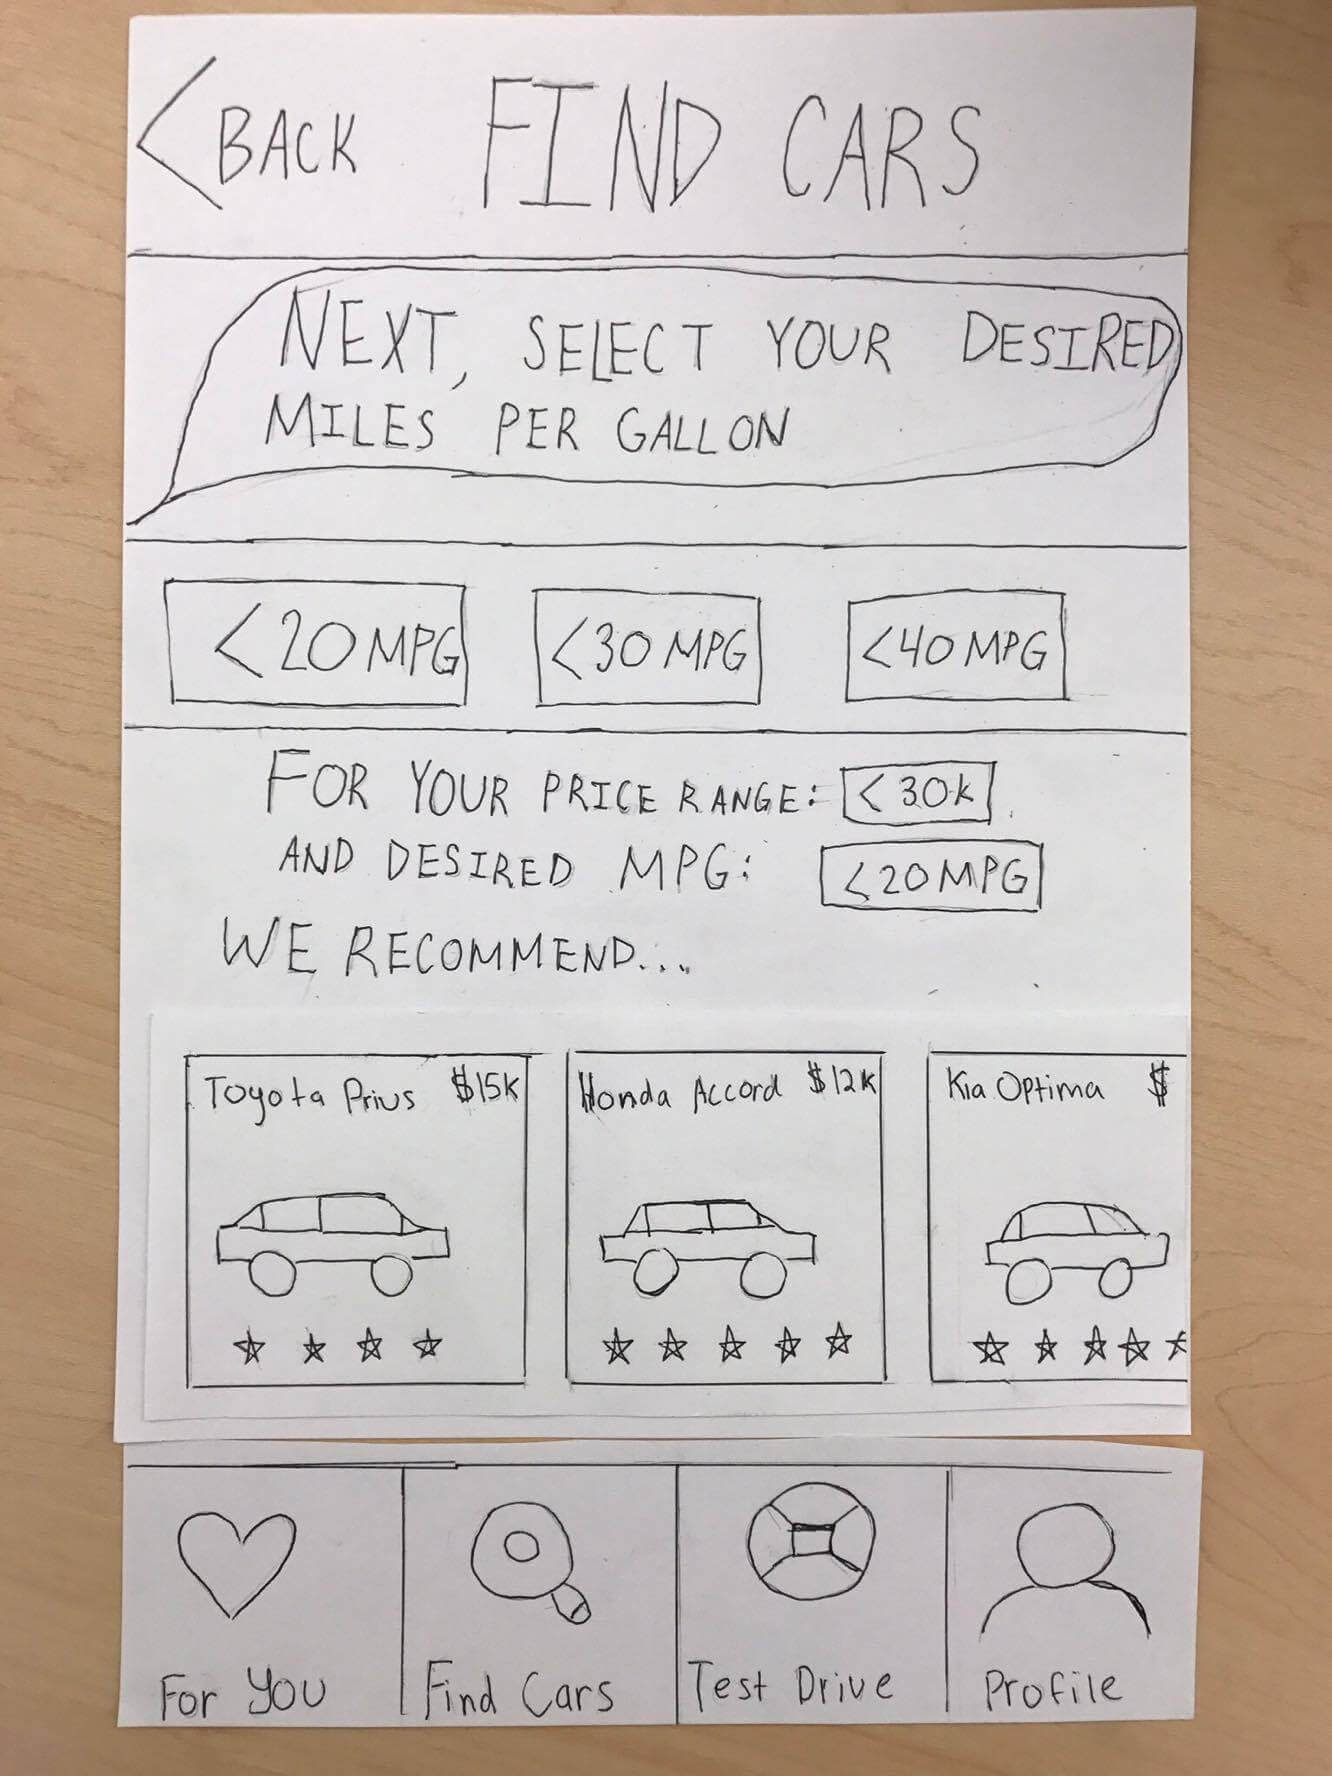 < BACK FIND CARS
NEXT, SELECT YOUR DESIRED
MILES PER GALLON
<20 MPG <30 MPG <40 MPG
FOR YOUR PRICE RANGE: <30K
AND DESIRED MPG: <20MPG
WE RECOMMEND...
Toyota Prius $15K Honda Accord $12K Kia Optima $
For You Find Cars Test Drive Profile